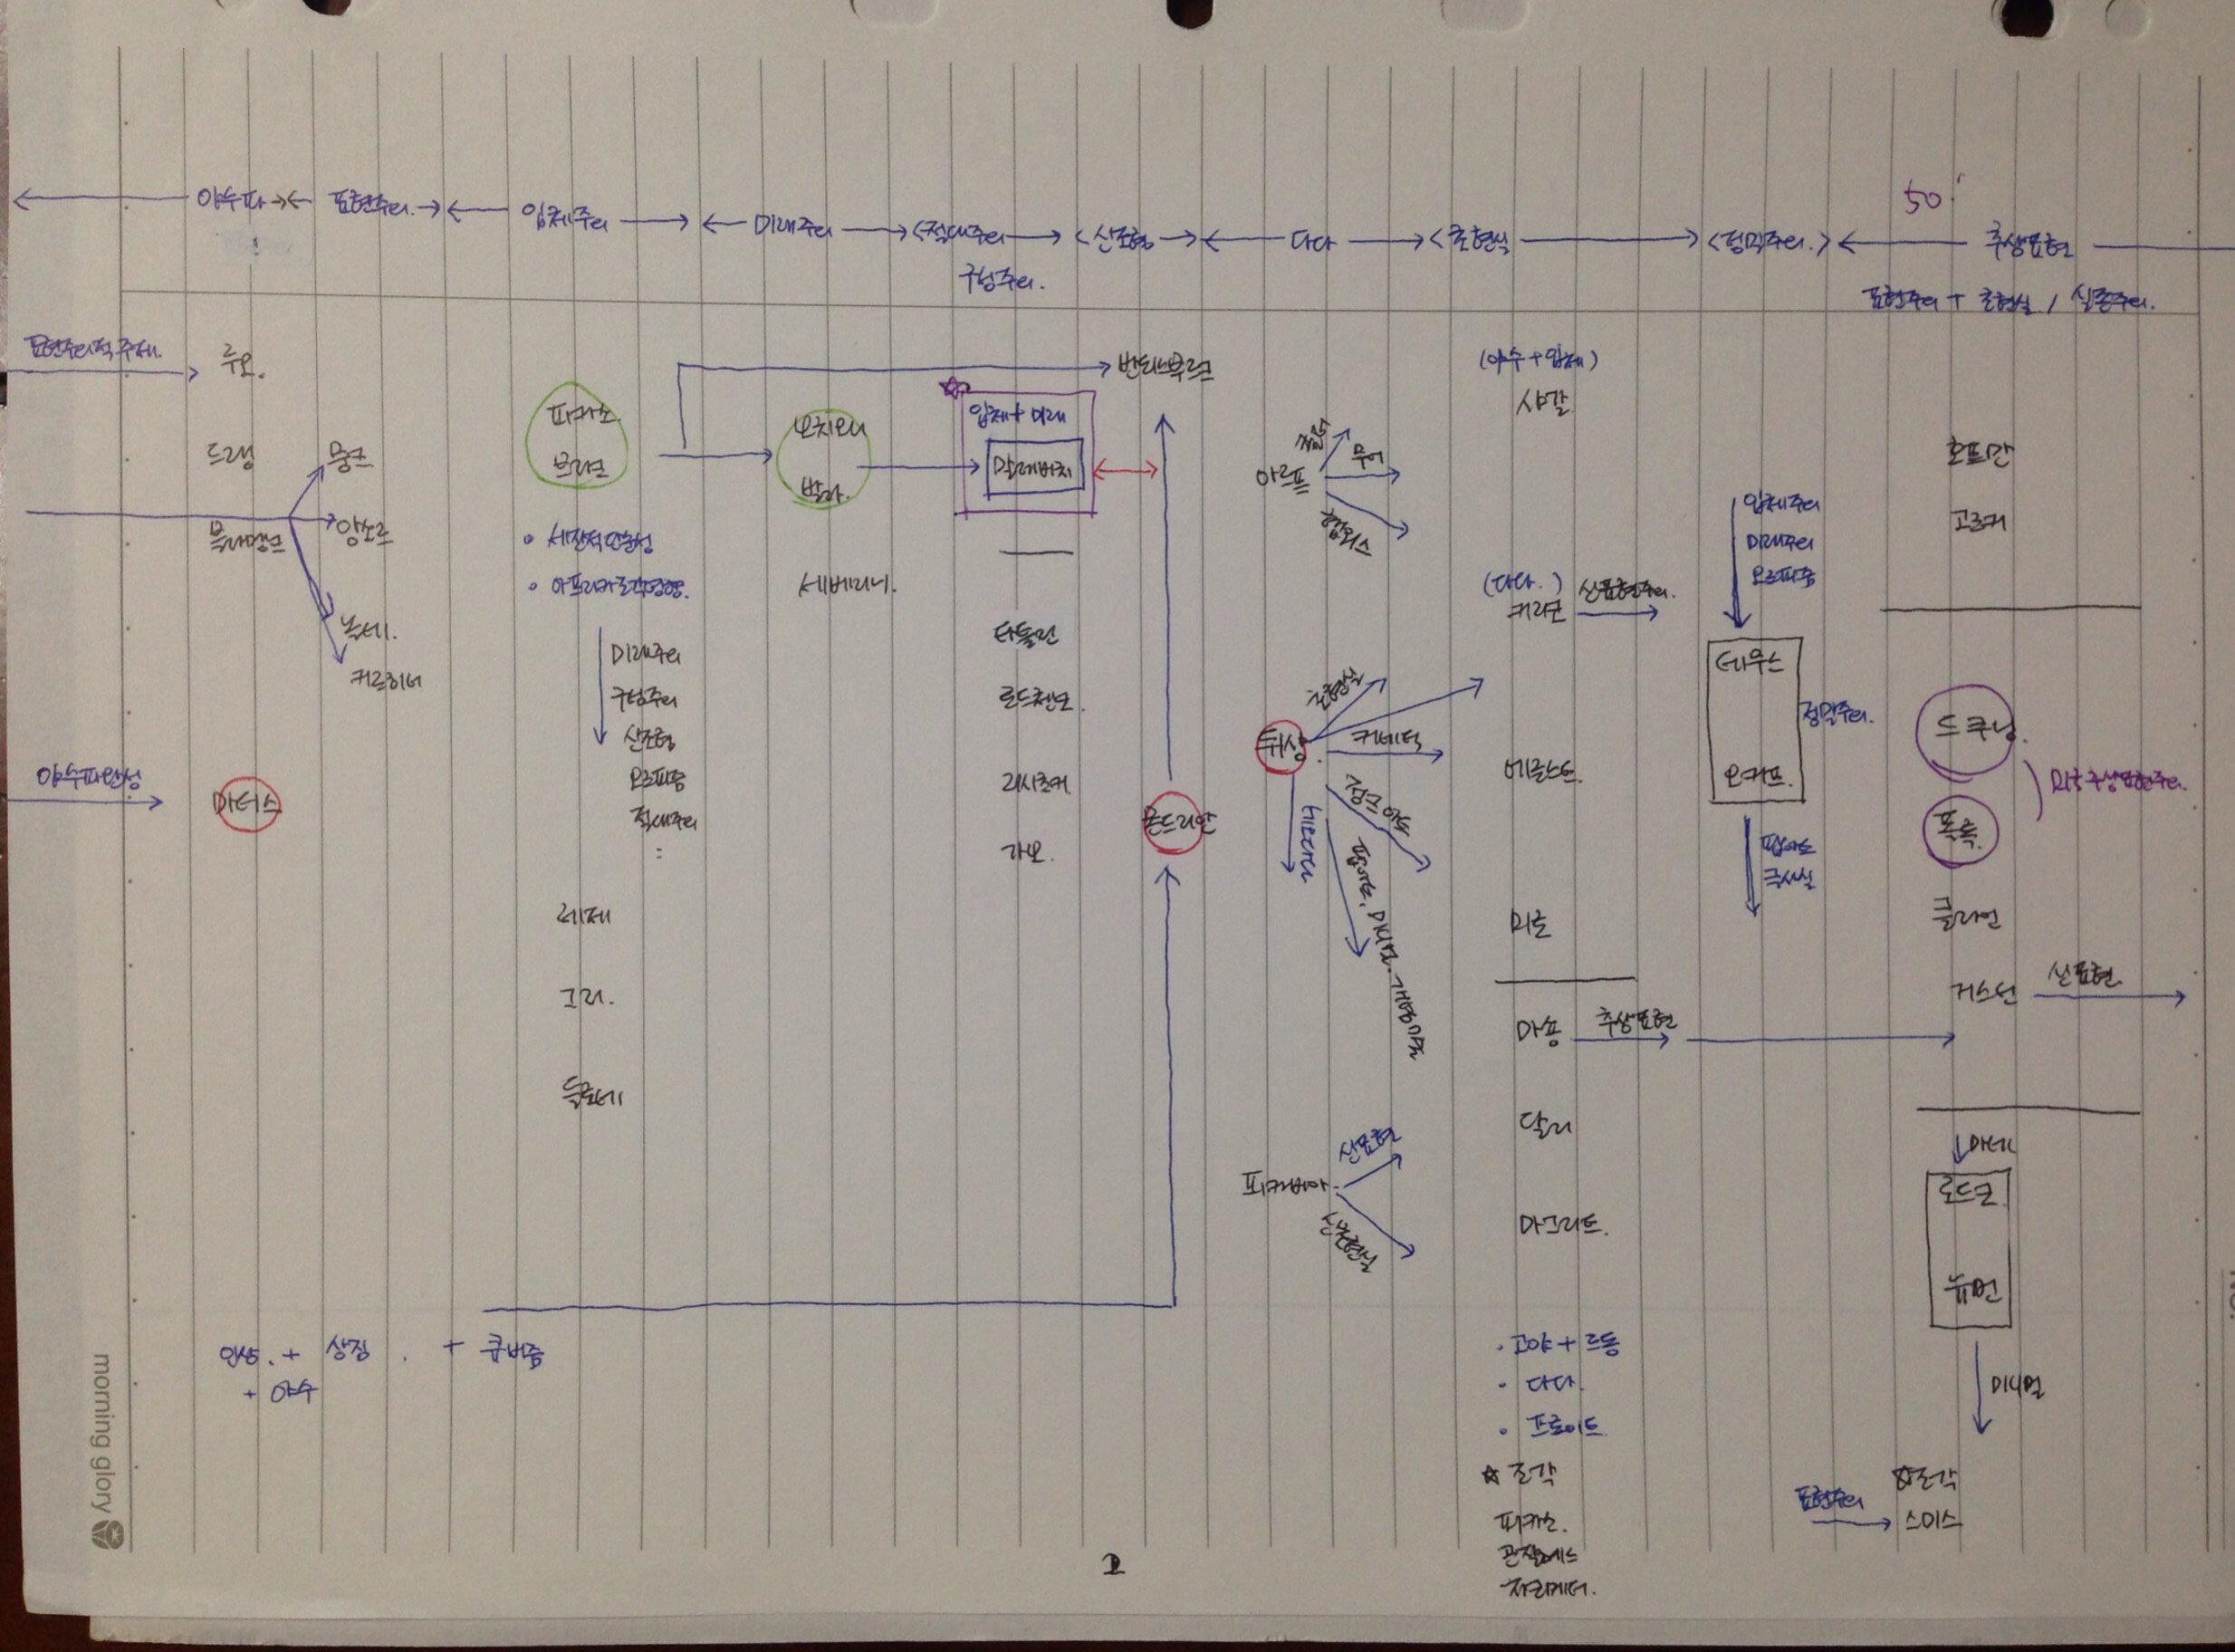 50'
야수파
표현주의
입체주의
미래주의
절대주의
신조형
다다
초현실
정밀주의
추상표현
구성주의.
표현주의 + 초현실 / 실존주의.
표현주의적 주제.
루오.
드랭
블라맹크
뭉크
앙소르
놀데.
키르히너
야수파완성
마티스
피카소
브라크
• 세잔적단순성
• 아프리카조각영향.
미래주의
구성주의
신조형
오르피즘
절대주의
:
레제
그리.
들로네
보치오니
발라.
세베리니.
입체+미래
말레비치
타틀린
로드첸코.
리시츠키
가보.
반되스부르크
몬드리안
아르프
무어
헵워스
뒤샹.
초현실
키네틱
정크아트
팝아트, 미니멀. 개념미술
네오다다
피카비아
신표현
(야수+입체)
샤갈
(다다.)
키리코
신표현주의.
에른스트.
미로
마송
추상표현
달리
마그리트.
• 고야 + 르동
• 다다.
• 프로이트
☆ 조각
피카소.
곤잘레스
자코메티.
입체주의
미래주의
오르피즘
데무스
오키프.
정밀주의.
팝아트
극사실
호프만
고르키
드쿠닝.
폴록.
미국추상표현주의.
클라인
거스턴
신표현
마네
로드코
뉴먼
미니멀
☆조각
표현주의
스미스
인상. + 상징. + 큐비즘
+ 야수
morning glory
2